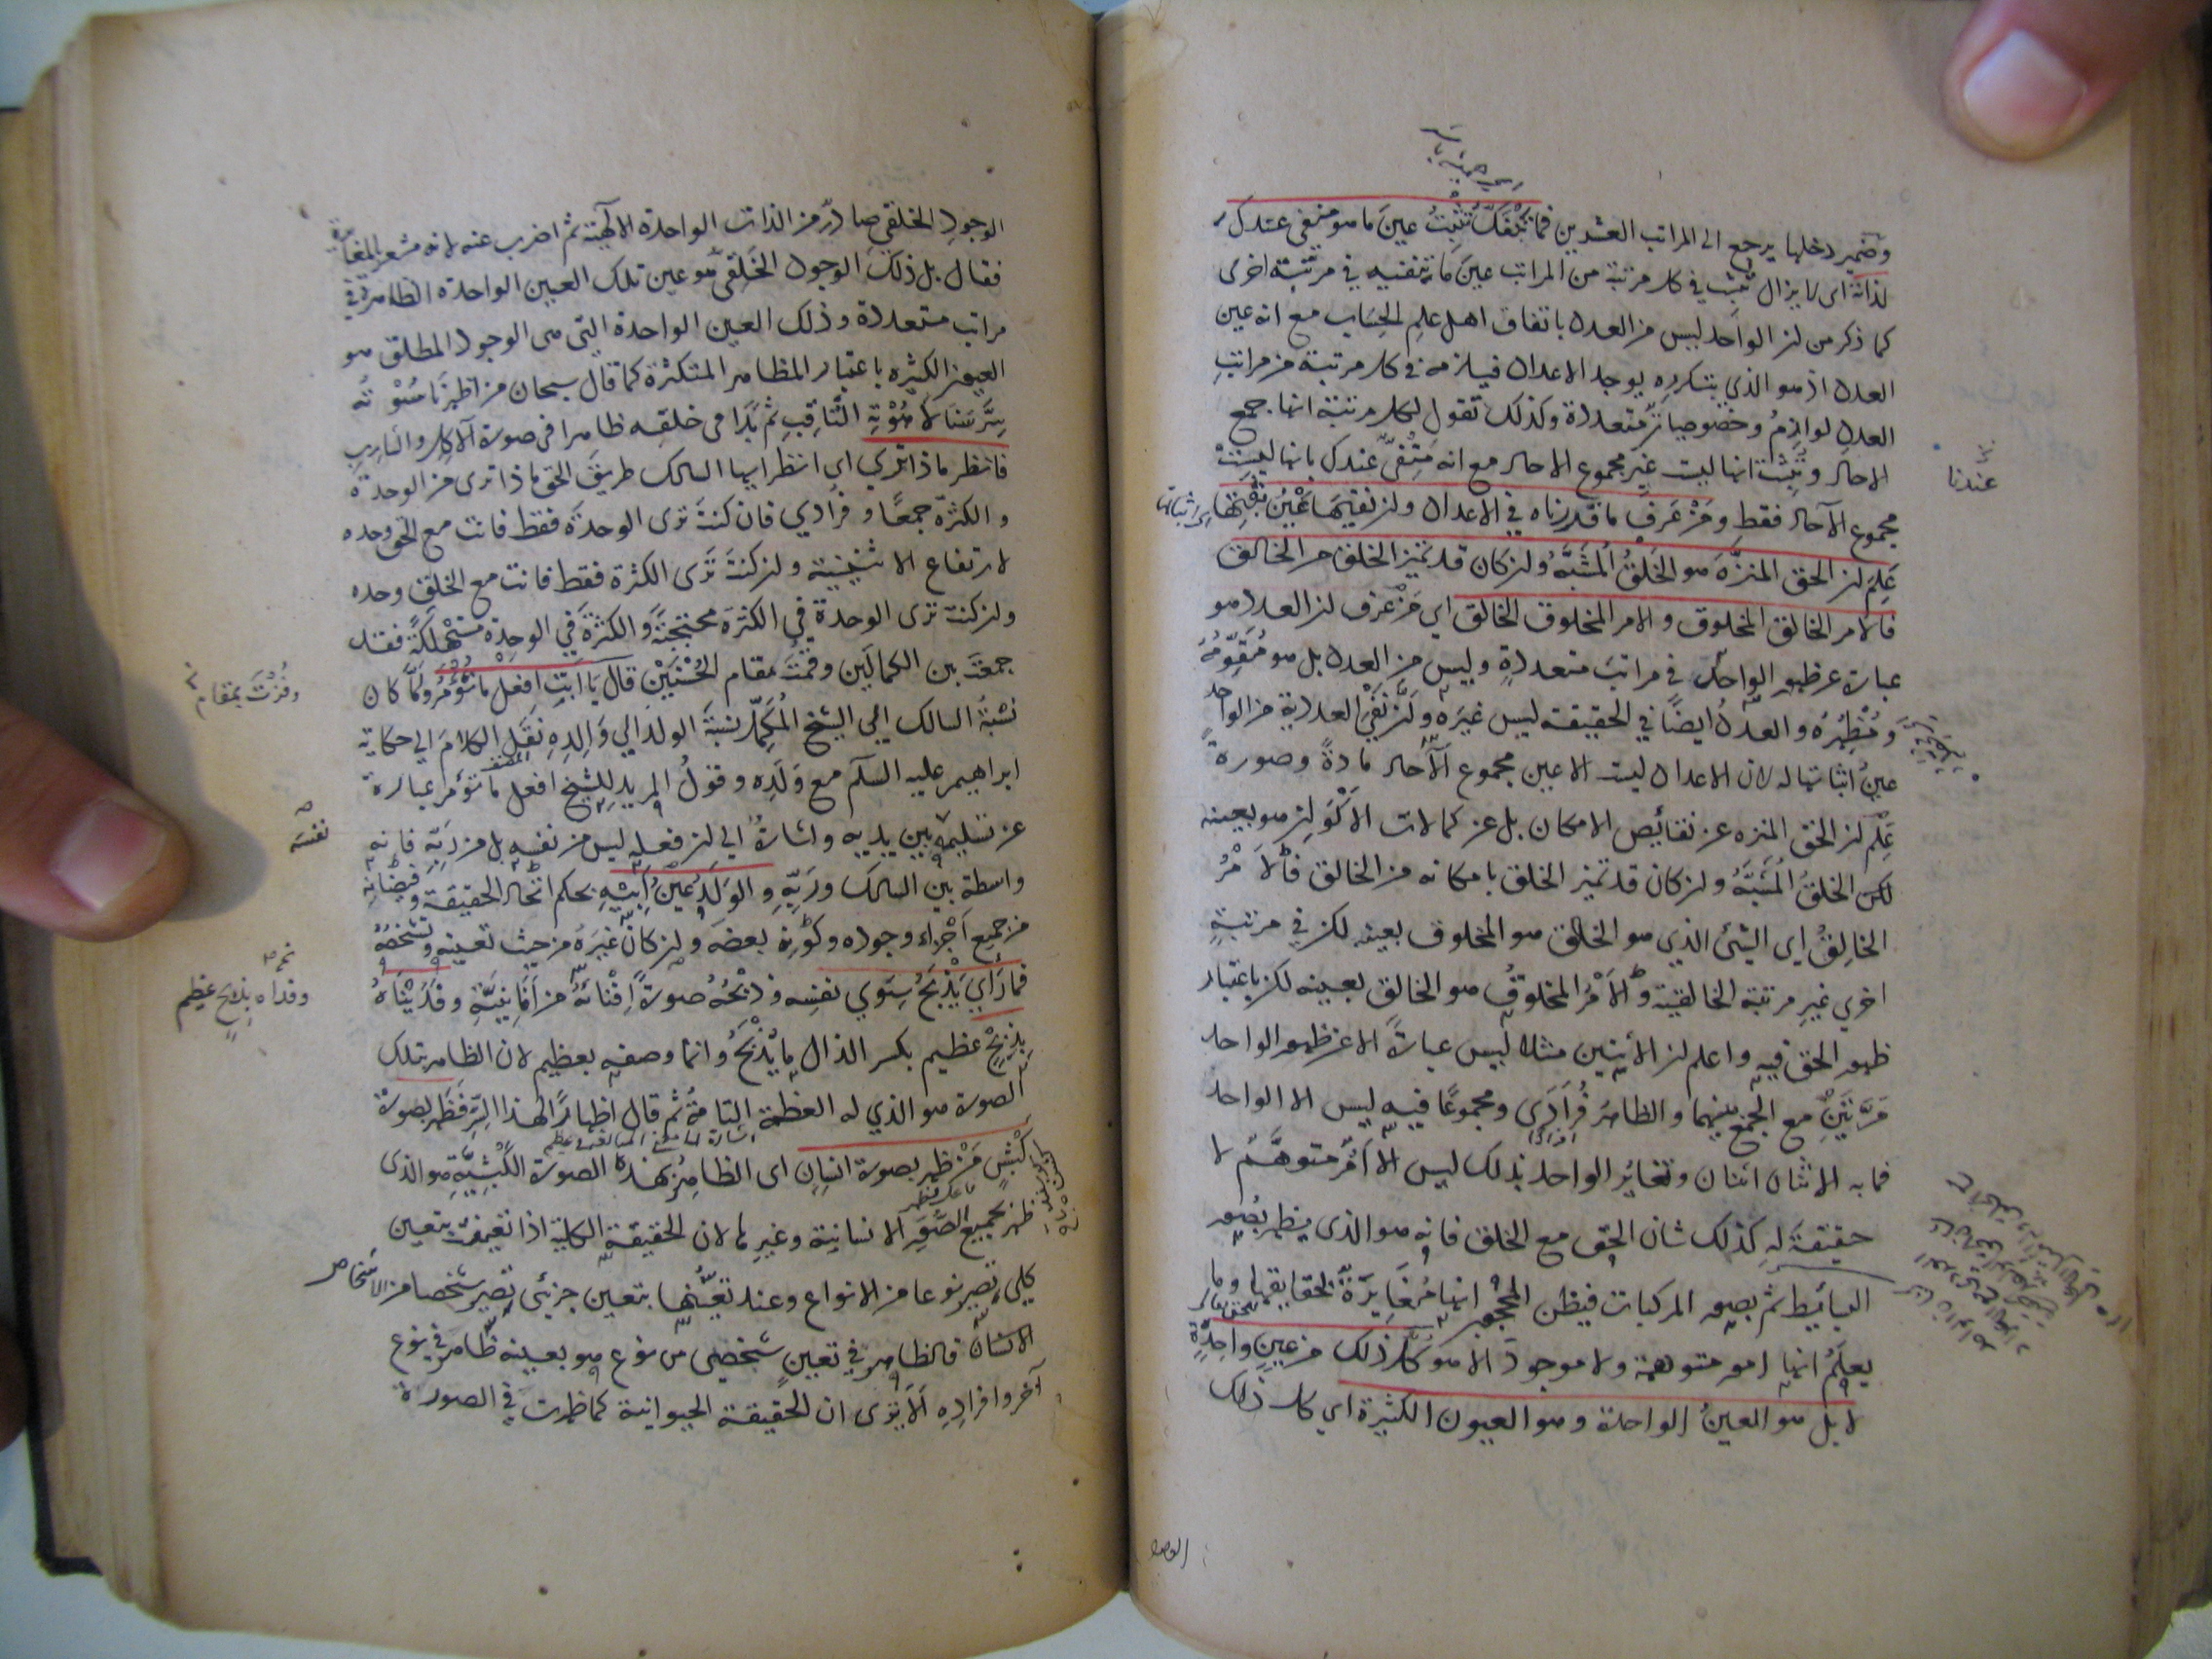 وضمير دخلها يرجع الى المراتب العشرين فما تنفك تثبت عين ما هو منفى عندك
لذاته اى لا يزال تثبت في كل مرتبة من المراتب عين ما تنفيه في مرتبة اخرى
كما ذكر من ان الواحد ليس من العدد باتفاق اهل علم الحساب مع انه عين
العدد اذ هو الذي بتكرره يوجد الاعداد فيلزمه في كل مرتبة من مراتب
العدد لوازم وخصوصيات متعددة وكذلك تقول لكل مرتبة انها جمع
الاحاد وتثبت انها ليست غير مجموع الاحاد مع انه منفى عندك بانها ليست
عندنا
مجموع الآحاد فقط ومن عرف ما قررناه في الاعداد وان نفيها عين ثبتها
علم ان الحق المنزه هو الخلق المشبه وان كان قد تميز الخلق من الخالق
فالامر الخالق المخلوق والامر المخلوق الخالق اي من عرف ان العدد هو
عبارة عن ظهور الواحد في مراتب متعددة وليس من العدد بل هو مقومه
ومظهره والعدد ايضا في الحقيقة ليس غيره وان نفى العددية من الواحد
عين اثباتها له لان الاعداد ليست الا عين مجموع الآحاد مادة وصورة
علم ان الحق المنزه عن نقائص الامكان بل عن كمالات الاكوان هو بعينه
لكن الخلق المشبه وان كان قد تميز الخلق بامكانه من الخالق فالامر
الخالق اي الشئ الذي هو الخالق هو المخلوق بعينه لكن في مرتبة
اخرى غير مرتبة الخالقية والامر المخلوق هو الخالق بعينه لكن باعتبار
ظهور الحق فيه واعلم ان الاثنين مثلا ليس عبارة الا عن ظهور الواحد
مرتين مع الجمع بينهما والظاهر فرادى ومجموعا فيه ليس الا الواحد
فما به الاثنان اثنان وتغاير الواحد بذلك ليس الا امر متوهم لا
حقيقة له كذلك شان الحق مع الخلق فانه هو الذى يظهر بصور
البسائط ثم بصور المركبات فيظن المحجوب انها مغايرة لحقايقها وما
يعلم انها امور متوهمة ولا موجود الا هو كل ذلك من عين واحدة
لا بل هو العين الواحدة وهو العيون الكثيرة اي كل ذلك
الوجود
الوجود الخلقي صادر من الذات الواحدة الالهية ثم اضرب عنه لانه مشعر بالمغايرة
فقال بل ذلك الوجود الخلقى هو عين تلك العين الواحدة الظاهرة في
مراتب متعددة وذلك العين الواحدة التى هى الوجود المطلق هو
العيون الكثيرة باعتبار المظاهر المتكثرة كما قال سبحان من اظهر ناسوته
سر سنا لاهوته الثاقب ثم بدا في خلقه ظاهرا في صورة الآكل والشارب
فانظر ماذا ترى اي انظر ايها السالك طريق الحق ماذا ترى من الوحدة
والكثرة جمعا وفرادي فان كنت ترى الوحدة فقط فانت مع الحق وحده
لارتفاع الاثنينية وان كنت ترى الكثرة فقط فانت مع الخلق وحده
وان كنت ترى الوحدة في الكثرة محتجبة والكثرة في الوحدة مستهلكة فقد
جمعت بين الكمالين وقمت مقام الحسنيين قال يا ابت افعل ما تؤمر ولما كان
وفزت بمقام
نسبة السالك الي الشيخ المكمل نسبة الولد الي والده نقل الكلام الي حكاية
ابراهيم عليه السلم مع ولده وقول المريد للشيخ افعل ما تؤمر عبارة
عن تسليمه بين يديه واشارة الي ان فعله ليس من نفسه بل من ربه فانه
نفسه
واسطة بين السالك وربه والولد عين ابيه بحكم اتحاد الحقيقة وفيضانه
من جميع اجزاء وجوده وكونه بعضه وان كان غيره من حيث تعينه وتشخصه
فما رأي يذبح سوي نفسه وذبحه صورة افنائه من انانيته وفديناه
وفداه بذبح عظيم
بذبح عظيم بكسر الذال ما يذبح وانما وصفه بعظيم لان الظاهر بتلك
الصورة هو الذي له العظمة التامة ثم قال اظهارا لهذا السر فظهر بصورة
كبش من ظهر بصورة انسان اى الظاهر بهذه الصورة الكبشية هو الذى
ظهر بجميع الصور الانسانية وغيرها لان الحقيقة الكلية اذا تعينت بتعين
كلي تصير نوعا من الانواع وعند تعينها بتعين جزئي تصير شخصا من الاشخاص
الانسان فالظاهر في تعين شخصى من نوع هو بعينه ظاهر في نوع
آخر وافراده الا يرى ان الحقيقة الحيوانية كما ظهرت في الصورة